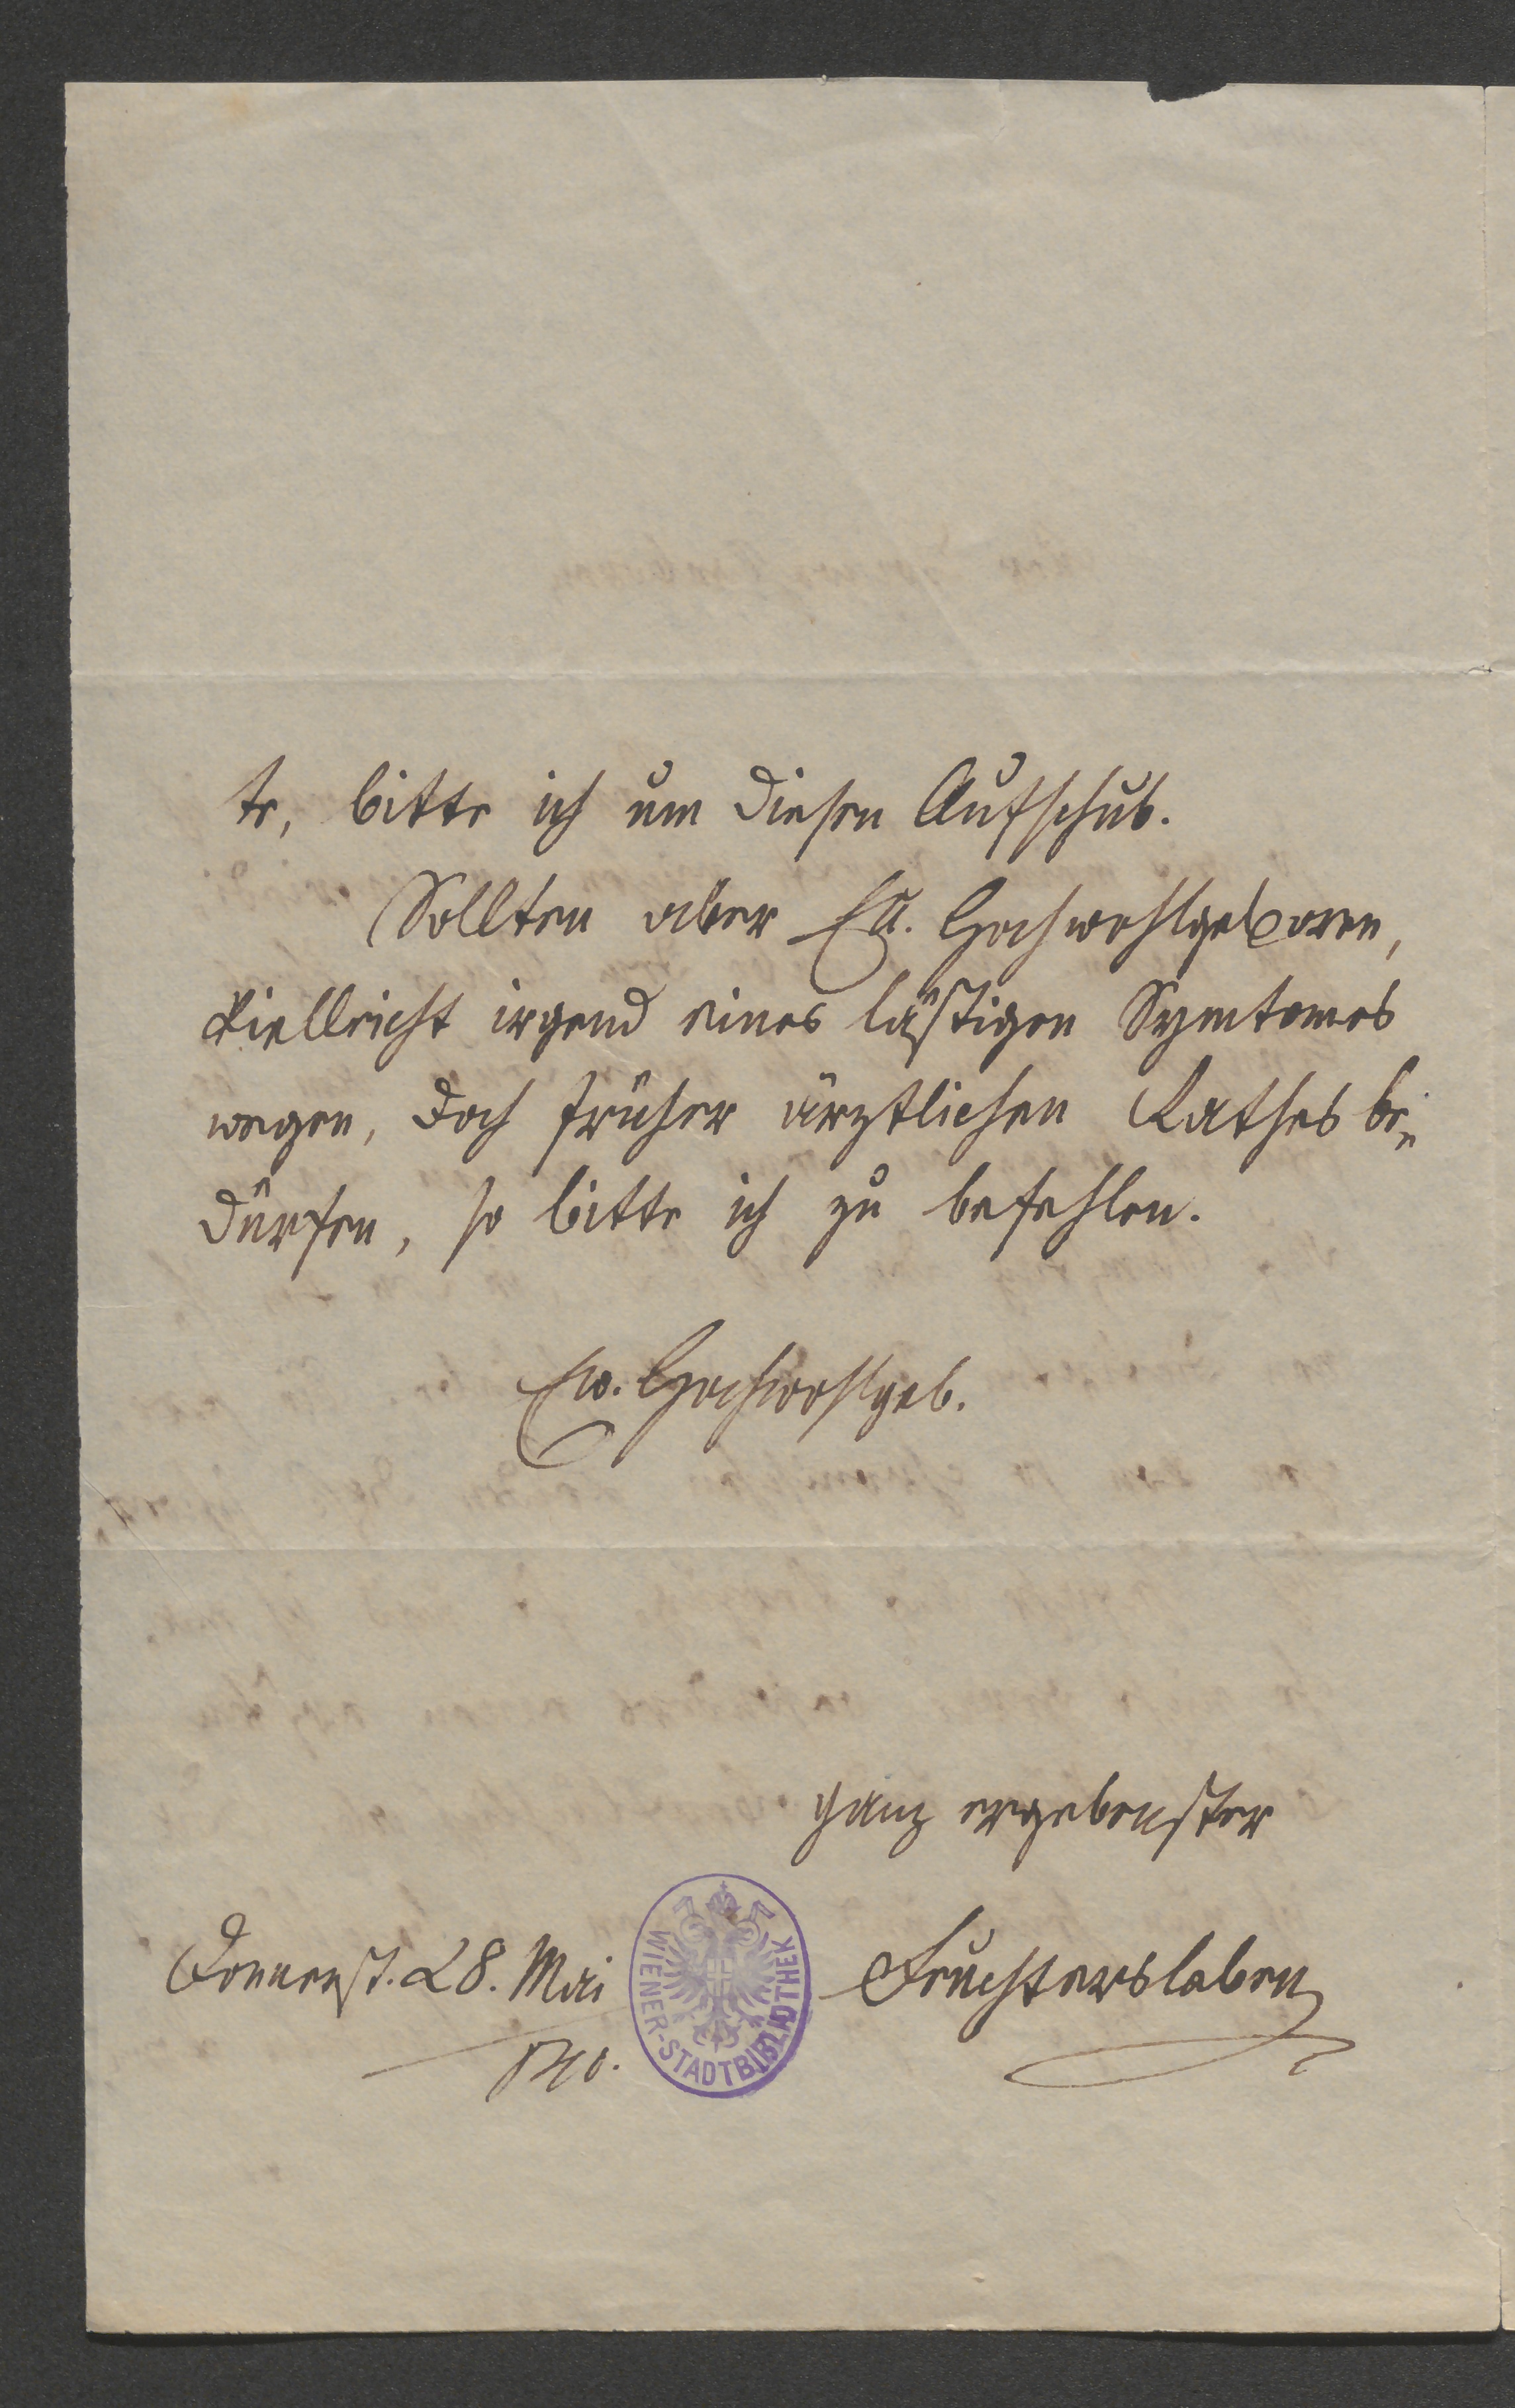 te, bitte ich um diesen Aufschub.
Sollten aber Eu. Hochwohlgeboren,
vielleicht irgend eines lästigen Symtomes
wegen, doch früher ärztlichen Rathes be-
dürfen, so bitte ich zu befehlen.
Ew. Hochwohlgeb.
ganz ergebenster
Donnerst. 28. Mai
Feuchtersleben
840.
WIENER-STADTBIBLIOTHEK